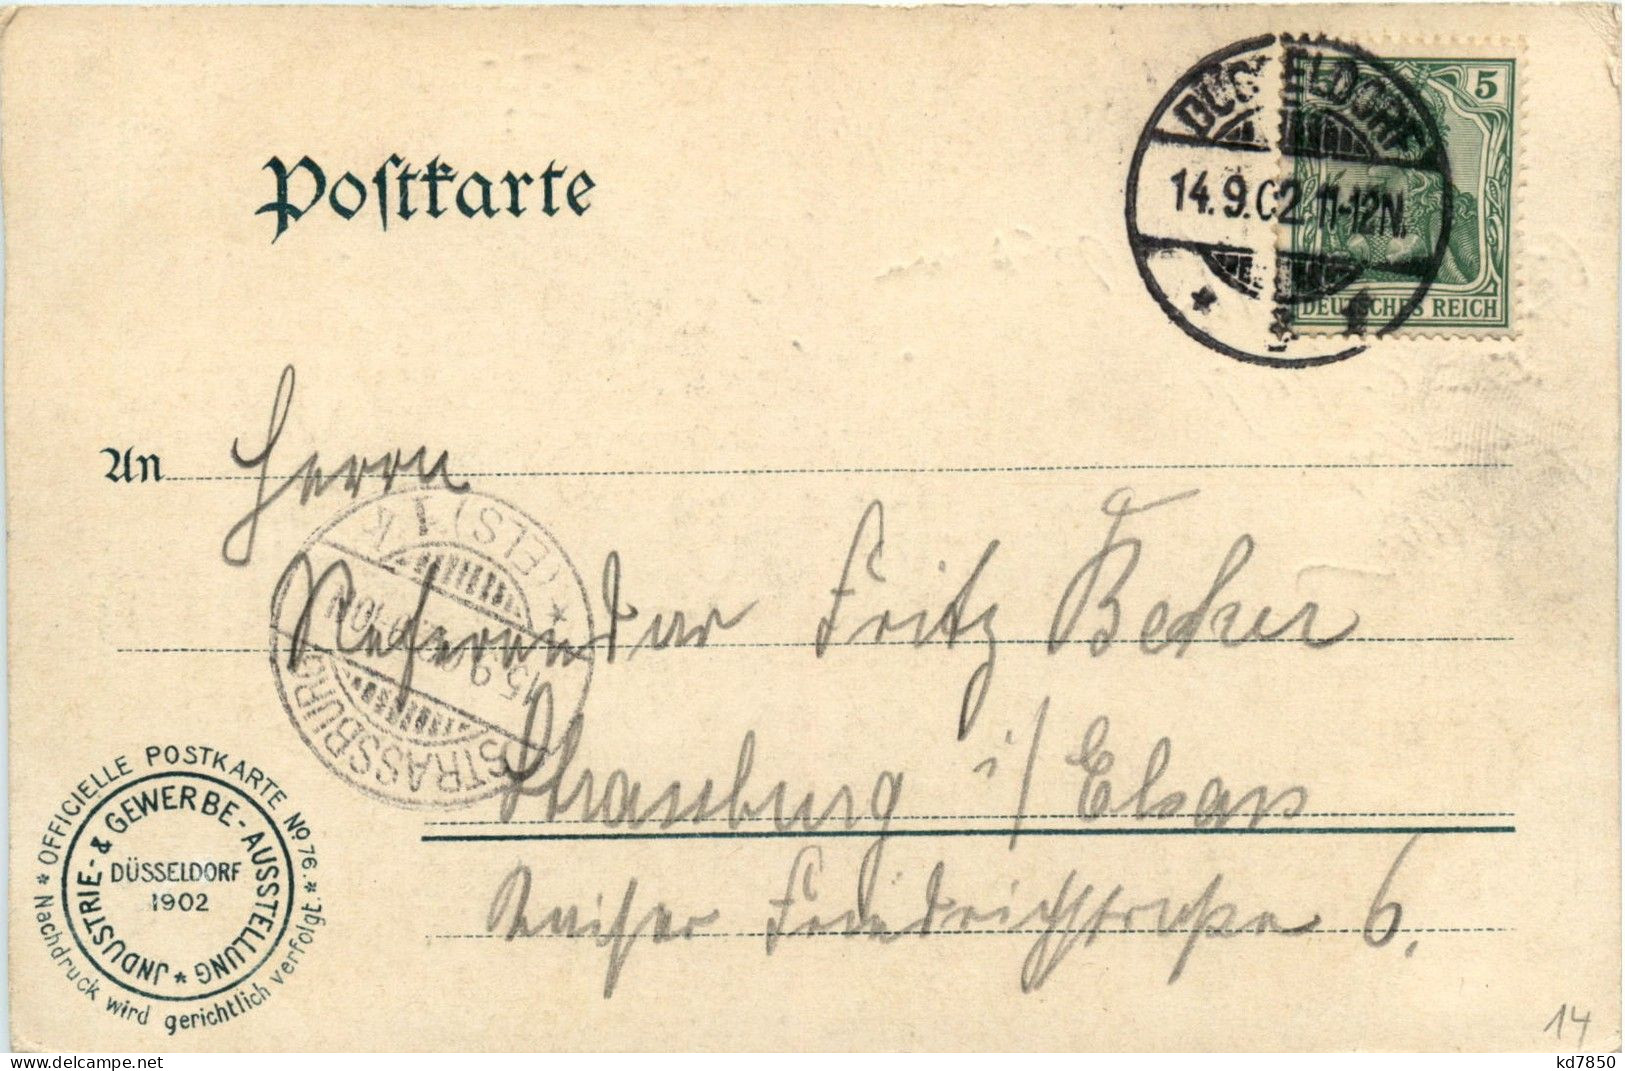 Postkarte
DÜSSELDORF
14.9.02. 11-12N.
5
5
DEUTSCHES REICH
An Herrn
Referendar Fritz Becker
Strassburg i/ Elsass
Kaiser Friedrichstrasse 6.
STRASSBURG
15.9. 9-10N
* (ELS) 1 K
* OFFICIELLE POSTKARTE No 76. *
Nachdruck wird gerichtlich verfolgt.
JNDUSTRIE- & GEWERBE-AUSSTELLUNG *
DÜSSELDORF
1902
14
kd7850